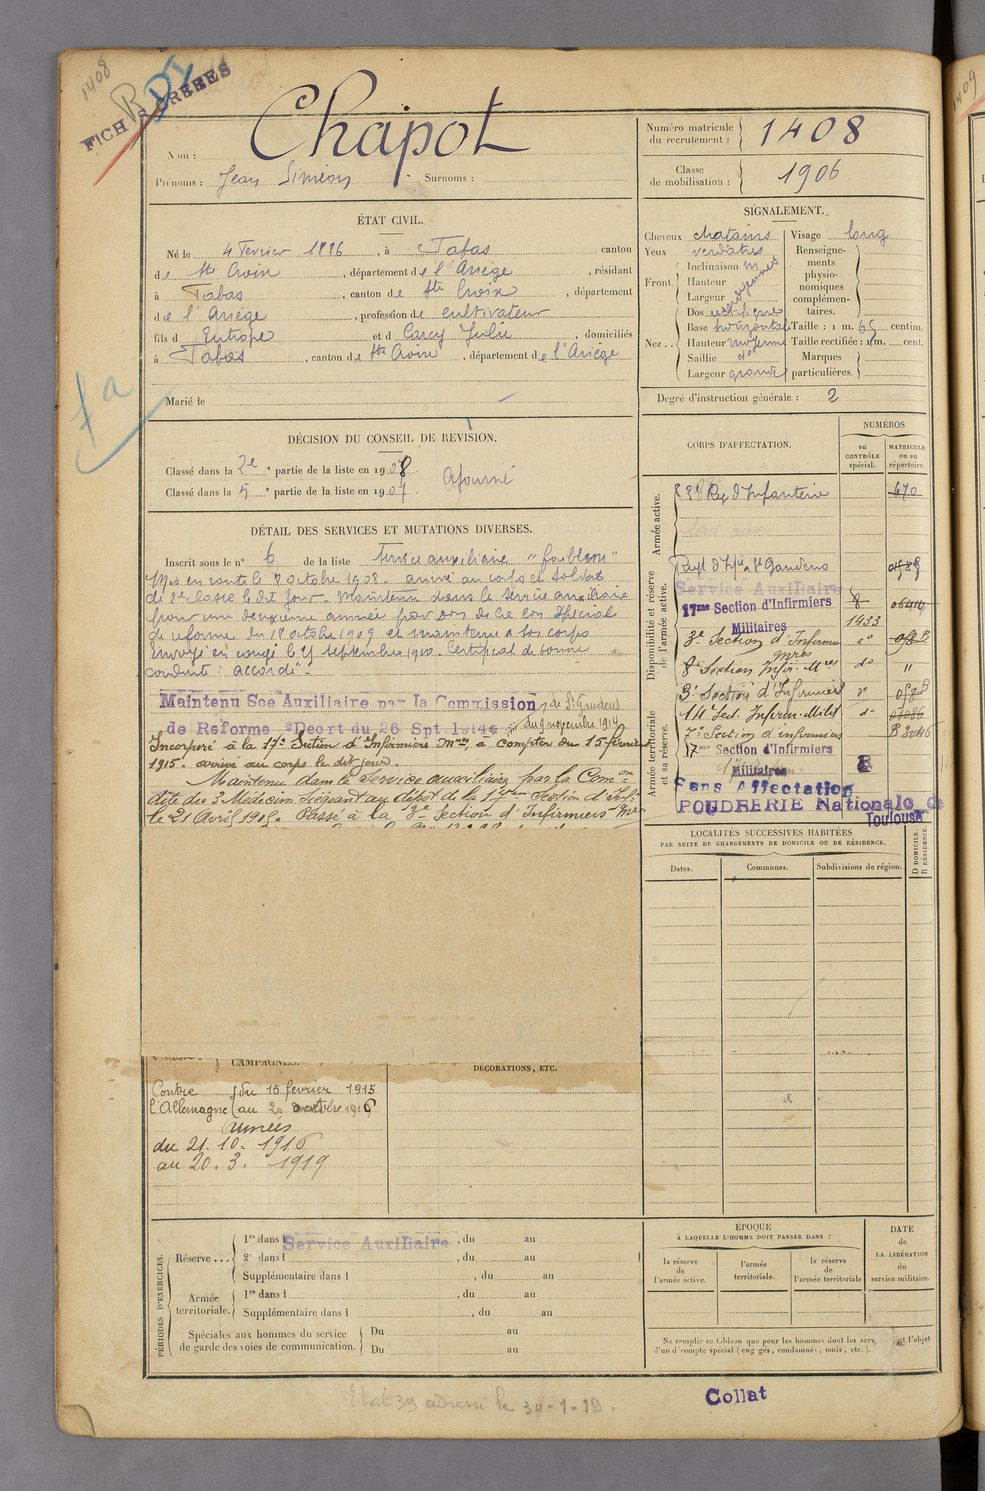 1408
FICHES CRÉÉES
Chapot
Nom :
Prénoms : Jean Siméon Surnoms :
Numéro matricule du recrutement : 1408
Classe de mobilisation : 1906
ÉTAT CIVIL.
Né le 4 Février 1886, à Tabas canton
de Ste Croix, département de l'Ariège, résidant
à Tabas, canton de Ste Croix, département
de l'Ariège, profession de cultivateur
fils d'Eutrope et d Carcy Julie, domiciliés
à Tabas, canton de Ste Croix, département de l'Ariège
Marié le
SIGNALEMENT.
Cheveux chatains
Yeux verdâtres
Front Inclinaison m
Hauteur
Largeur
Nez Dos rectiligne
Base horizontale
Hauteur moyenne
Saillie do
Largeur grande
Visage long
Renseignements physionomiques complémentaires.
Taille : 1 m. 65 centim.
Taille rectifiée : 1 m. cent.
Marques particulières.
Degré d'instruction générale : 2
fa
DÉCISION DU CONSEIL DE RÉVISION.
Classé dans la 2e partie de la liste en 1908 Ajourné
Classé dans la 5e partie de la liste en 1907
DÉTAIL DES SERVICES ET MUTATIONS DIVERSES.
Inscrit sous le n° 6 de la liste service auxiliaire "faiblesse"
Mis en route le 8 octobre 1908. arrivé au corps et soldat
de 2e classe le dit jour. Maintenu dans le service auxiliaire
pour une deuxième année par don de la Con Spécial
de réforme du 18 octobre 1909 et maintenu à son corps
Envoyé en congé le 25 septembre 1910. Certificat de bonne
conduite : "accordé".
Maintenu Sce Auxiliaire par la Commission de St Gaudens
de Réforme Décret du 26 Spt 1914 du 9 novembre 1914
Incorporé à la 17e Section d'Infirmiers Mres à compter du 15 février
1915. arrivé au corps le dit jour.
Maintenu dans le service auxiliaire par la Comon
dite des 3 Médecins siégeant au dépôt de la 17eme Section d'Inf.
le 21 Avril 1915. Passé à la 3e Section d'Infirmiers Mres
CORPS D'AFFECTATION.
NUMÉROS
au CONTRÔLE spécial.
MATRICULE ou au répertoire.
Armée active.
Reg d'Infanterie 670
Disponibilité et réserve de l'armée active.
Regt d'Inf à St Gaudens
Service Auxiliaire
17me Section d'Infirmiers Militaires 8
1433
3e Section d'Infirmiers Mres do
8e Section Infir. Mres do "
Armée territoriale et sa réserve.
3e Section d'Infirmiers do
14e Sect. Infirm. Milit d°
7e Section d'infirmiers B 3046
17me Section d'Infirmiers Militaires 8
Sans Affectation
POUDRERIE Nationale de Toulouse
LOCALITÉS SUCCESSIVES HABITÉES
PAR SUITE DE CHANGEMENTS DE DOMICILE OU DE RÉSIDENCE.
Dates. Communes. Subdivisions de région. D DOMICILE. R RÉSIDENCE.
CAMPAGNES.
Contre l'Allemagne du 15 février 1915
au 20 octobre 1916
armées
du 21. 10. 1916
au 20. 3. 1919
DÉCORATIONS, ETC.
PÉRIODES D'EXERCICES.
Réserve ... 1re dans l , du au
Service Auxiliaire
2e dans l , du au
Supplémentaire dans l , du au
Armée territoriale. 1re dans l , du au
Supplémentaire dans l , du au
Spéciales aux hommes du service de garde des voies de communication. Du au
Du au
ÉPOQUE
À LAQUELLE L'HOMME DOIT PASSER DANS :
la réserve de l'armée active.
l'armée territoriale.
la réserve de l'armée territoriale
DATE de LA LIBÉRATION du service militaire.
Ne remplir ce tableau que pour les hommes dont les serv nt l'objet
d'un décompte spécial (engagés, condamnés, omis, etc.).
Etat 39 adressé le 30-1-19.
Collat
1409